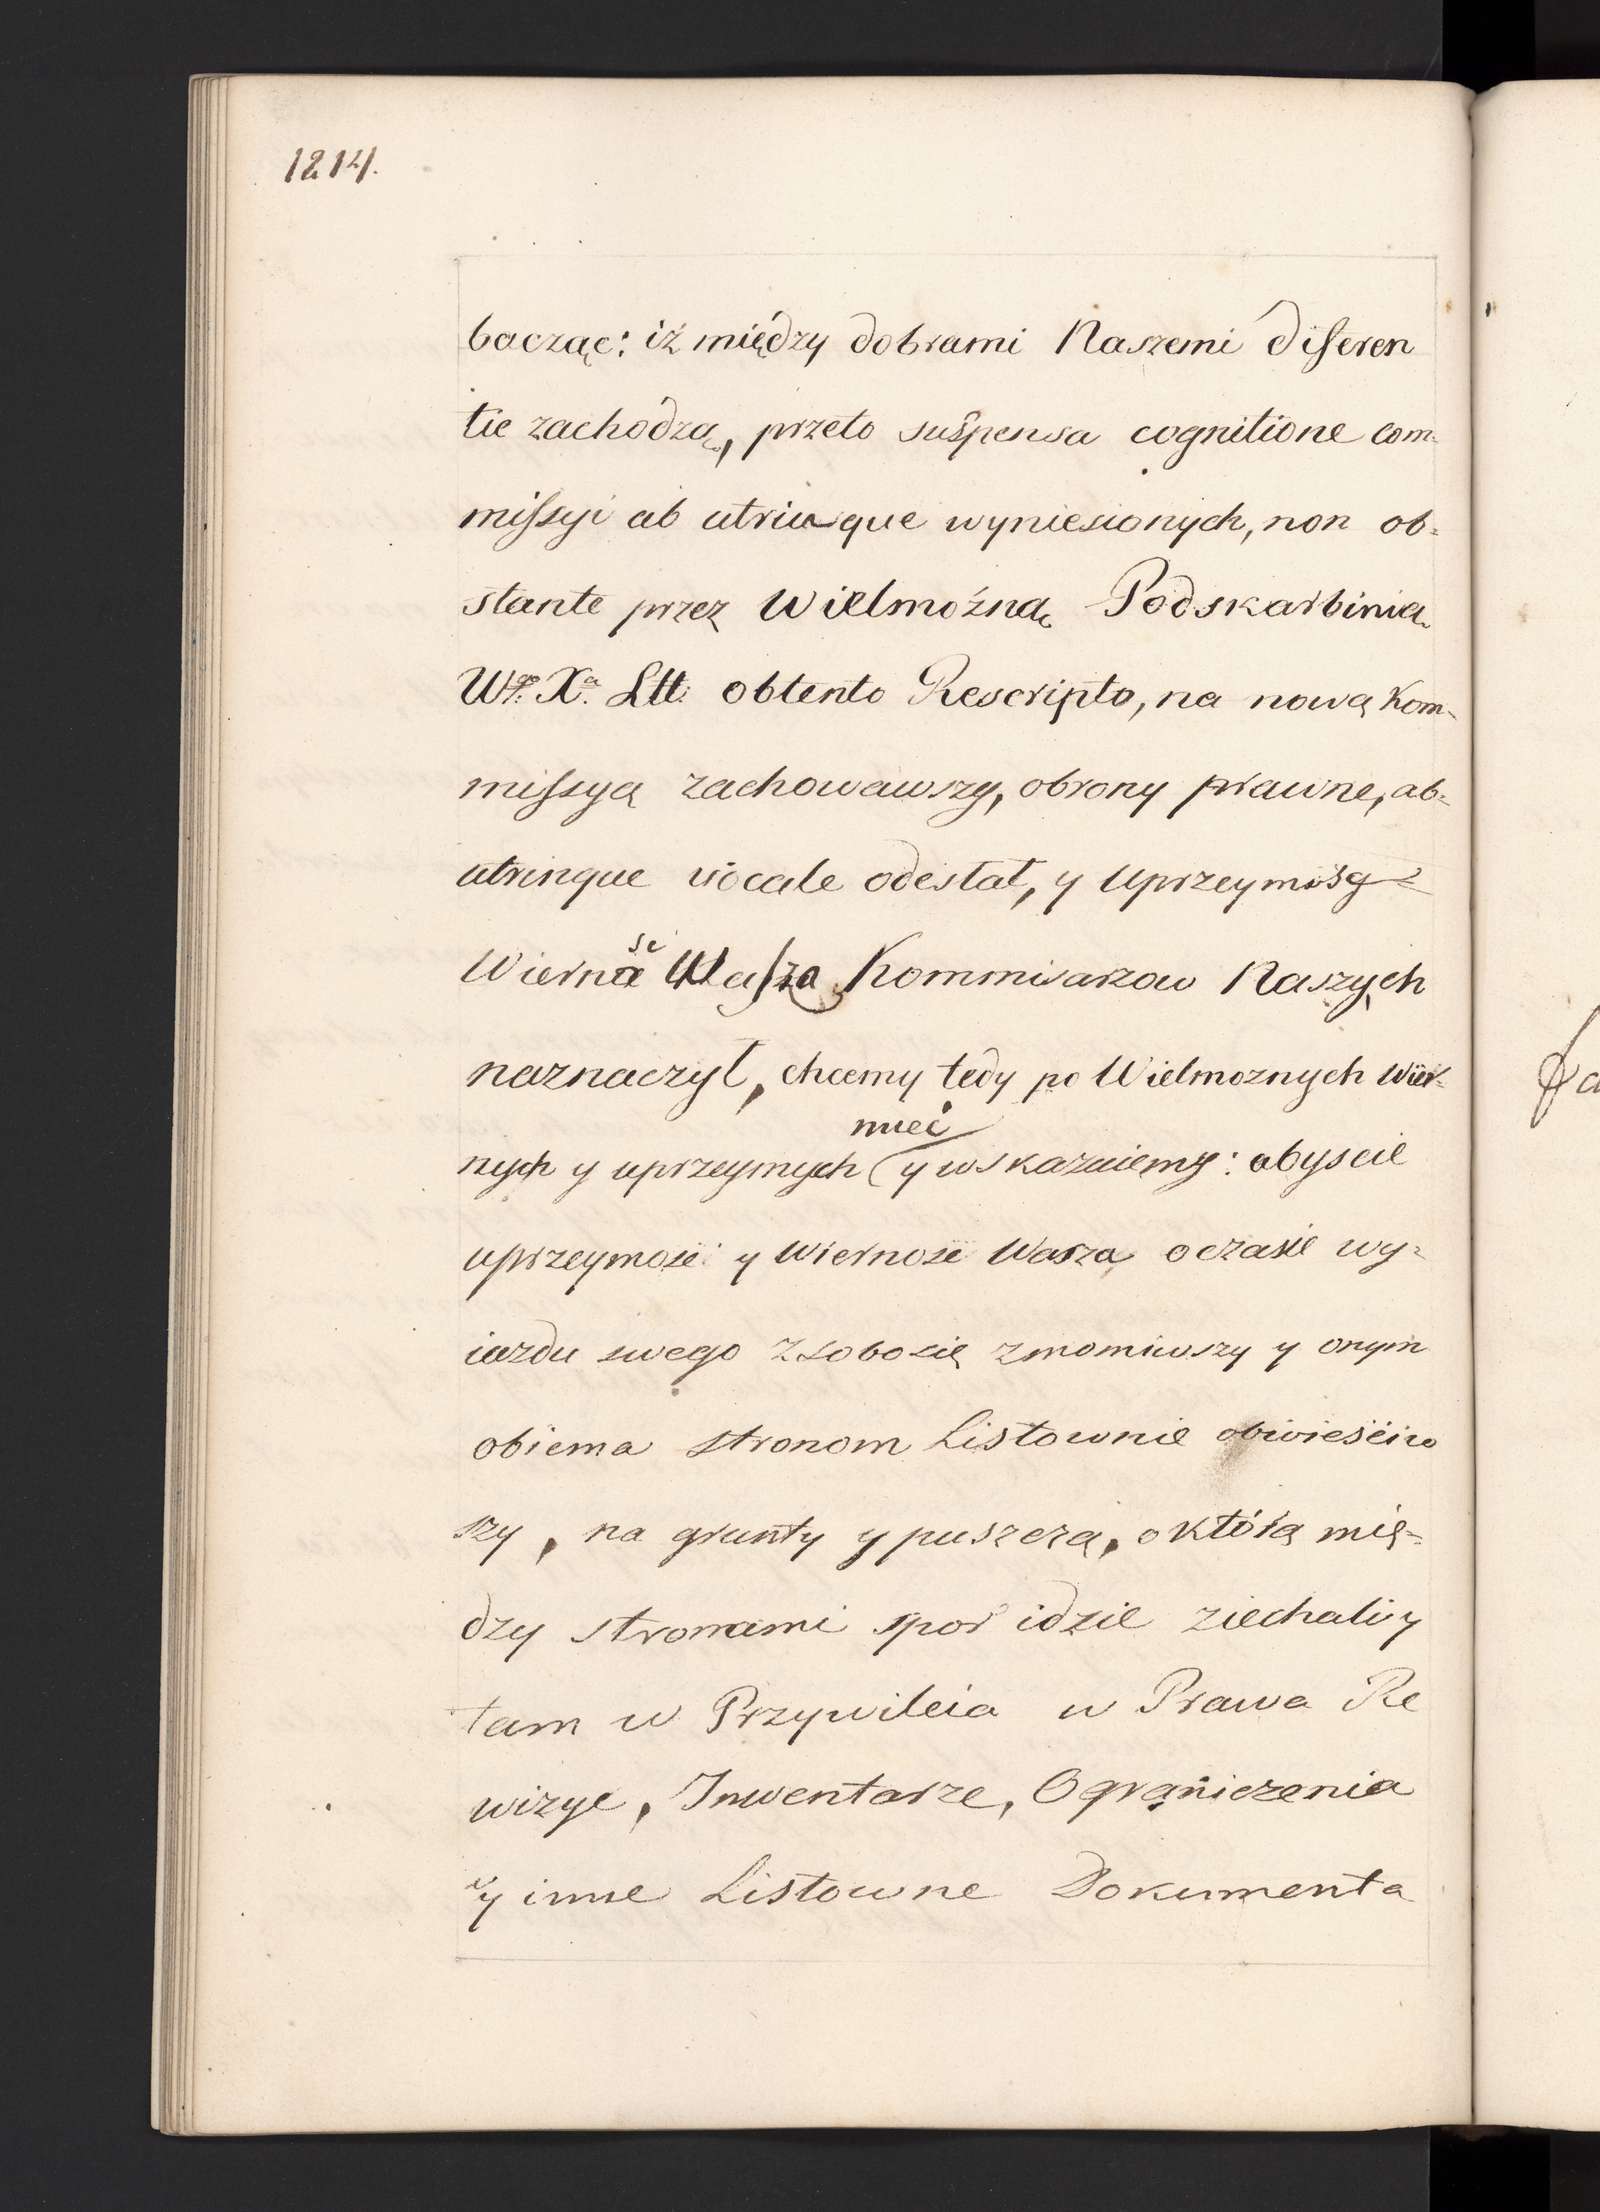 1214.
bacząc: iż między dobrami Naszemi diferen
tie zachodzą, przeto suspensa cognitione com-
missyi ab utriuque wyniesionych, non ob-
stante przez Wielmożną Podskarbinią
Wgo Xa Ltt. obtento Rescripto, na nową Kom-
missyą zachowawszy, obrony prawne, ab-
utrinque vocale odestał, y Uprzeymość
Wierność Waszą Kommisarzow Naszych
naznaczył, chcemy tedy po Wielmoznych Wier-
mieć
nych y uprzeymych y wskazuiemy: abyscie
uprzeymość y Wierność Wasza o czasie wy-
iazdu swego z sobosię zmomiwszy y onym
obiema stronom Listownie obwieściw
szy, na grunty y puszczą, o którą mię-
dzy stronami spor idzie ziechali y
tam w Przywileia w Prawa Re
wizye, Inwentarze, Ograniczenia
y inne Listowne Dokumenta